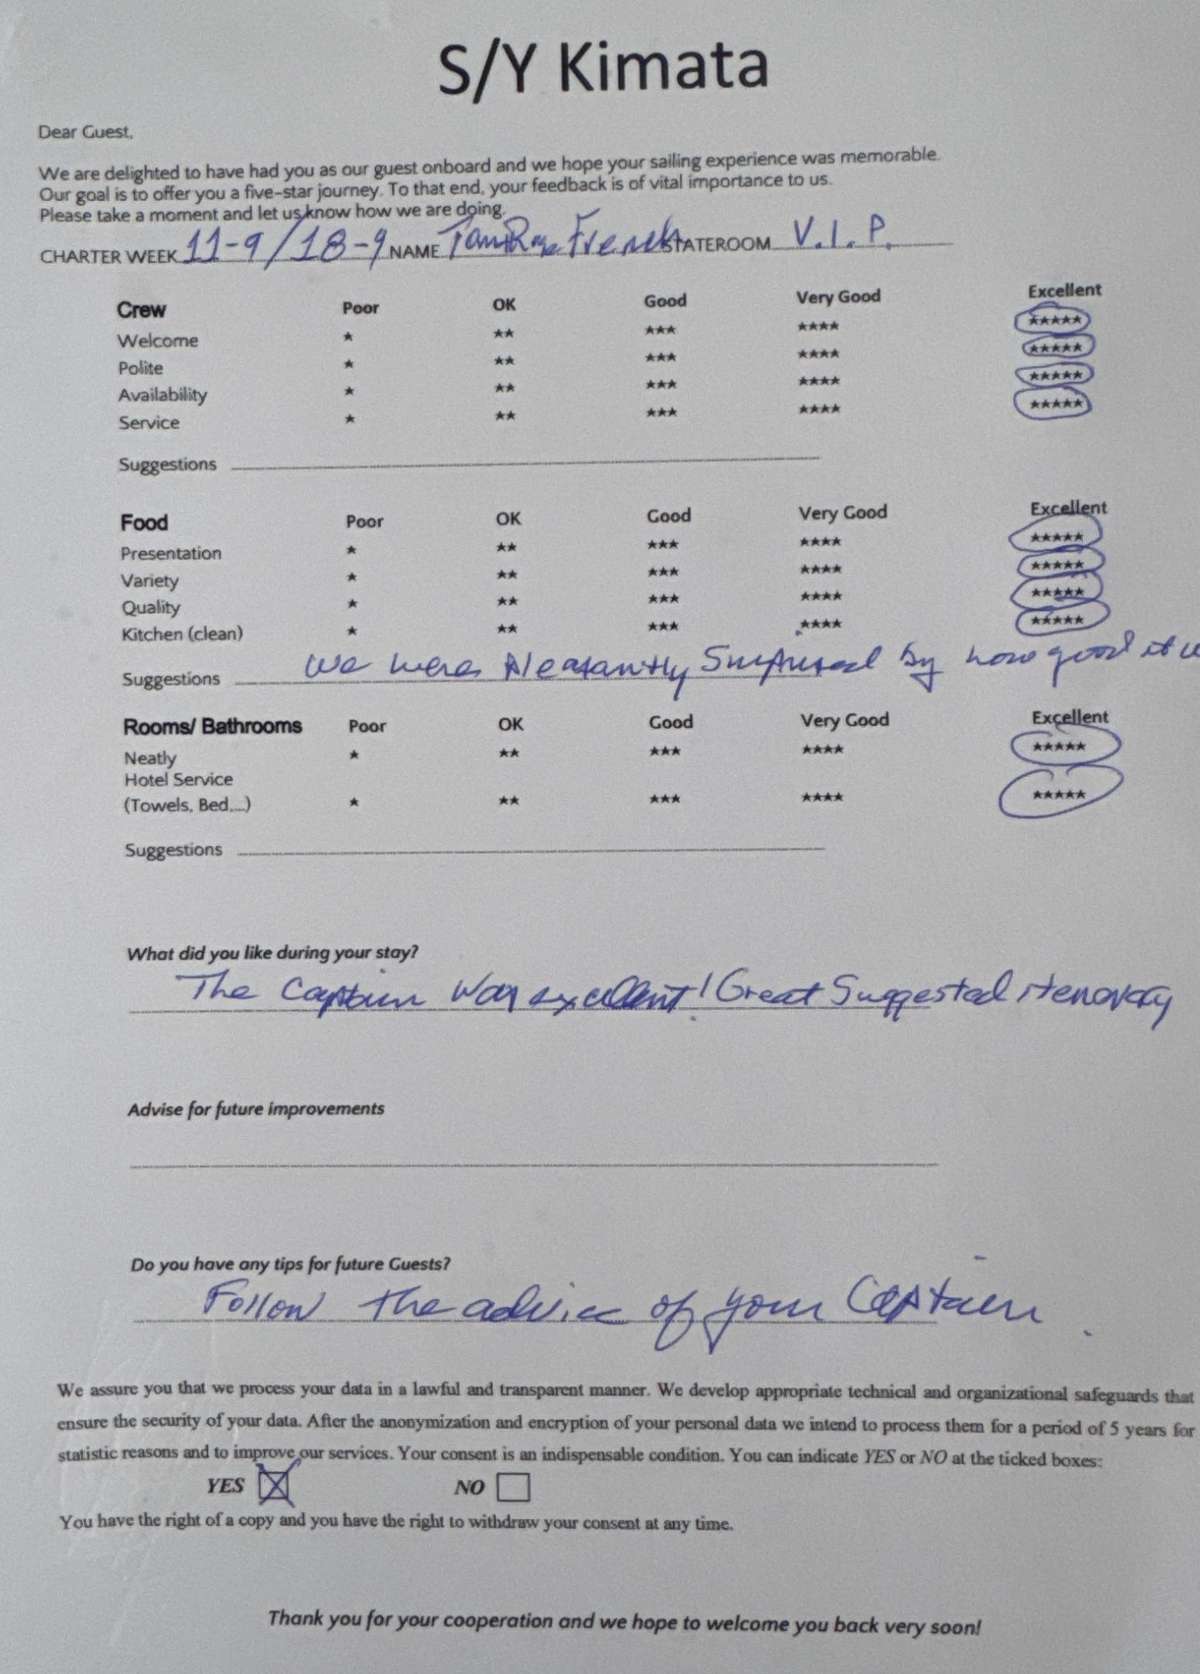 S/Y Kimata
Dear Guest,
We are delighted to have had you as our guest onboard and we hope your sailing experience was memorable.
Our goal is to offer you a five-star journey. To that end, your feedback is of vital importance to us.
Please take a moment and let us know how we are doing.
CHARTER WEEK 11-9/18-9 NAME French STATEROOM V.I.P.
Crew Poor OK Good Very Good Excellent
Welcome ★ ★★ ★★★ ★★★★ ★★★★★
Polite ★ ★★ ★★★ ★★★★ ★★★★★
Availability ★ ★★ ★★★ ★★★★ ★★★★★
Service ★ ★★ ★★★ ★★★★ ★★★★★
Suggestions
Food Poor OK Good Very Good Excellent
Presentation ★ ★★ ★★★ ★★★★ ★★★★★
Variety ★ ★★ ★★★ ★★★★ ★★★★★
Quality ★ ★★ ★★★ ★★★★ ★★★★★
Kitchen (clean) ★ ★★ ★★★ ★★★★ ★★★★★
Suggestions We were pleasantly surprised by how good it
Rooms/ Bathrooms Poor OK Good Very Good Excellent
Neatly ★ ★★ ★★★ ★★★★ ★★★★★
Hotel Service
(Towels, Bed,...) ★ ★★ ★★★ ★★★★ ★★★★★
Suggestions
What did you like during your stay?
The Captain was excellent! Great Suggested itenovary
Advise for future improvements
Do you have any tips for future Guests?
Follow the advice of your Captain.
We assure you that we process your data in a lawful and transparent manner. We develop appropriate technical and organizational safeguards that
ensure the security of your data. After the anonymization and encryption of your personal data we intend to process them for a period of 5 years for
statistic reasons and to improve our services. Your consent is an indispensable condition. You can indicate YES or NO at the ticked boxes:
YES NO
You have the right of a copy and you have the right to withdraw your consent at any time.
Thank you for your cooperation and we hope to welcome you back very soon!